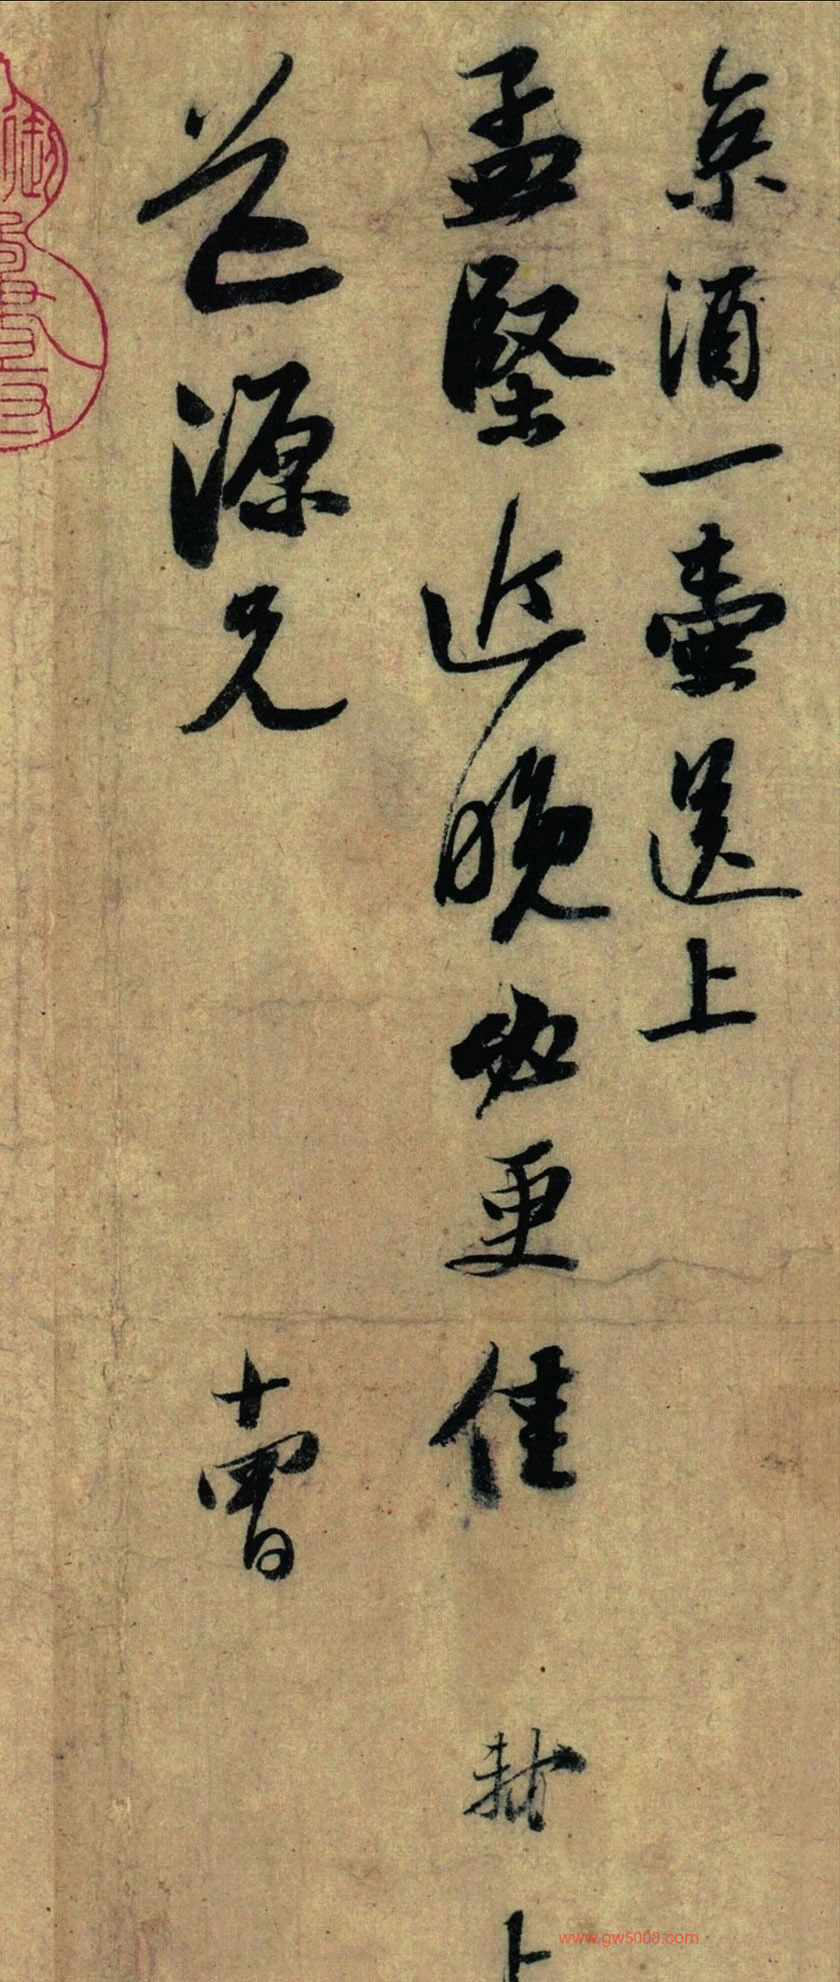 京酒一壺送上
孟堅近晚必更佳
黻上
道源兄
十曹
www.gw5000.com